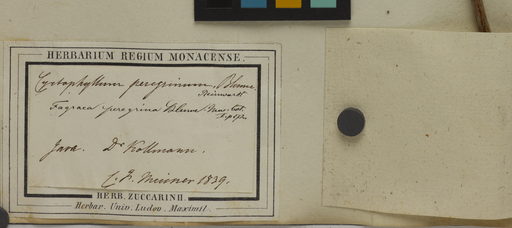 HERBARIUM REGIUM MONACENSE.
Cyrtophyllum peregrinum, Blume.
Reinwardt
Fagraea peregrina Blume Mus. bot.
Java. Dr Kollmann.
C. F. Meisner 1839.
HERB. ZUCCARINII.
Herbar. Univ. Ludov. Maximil.